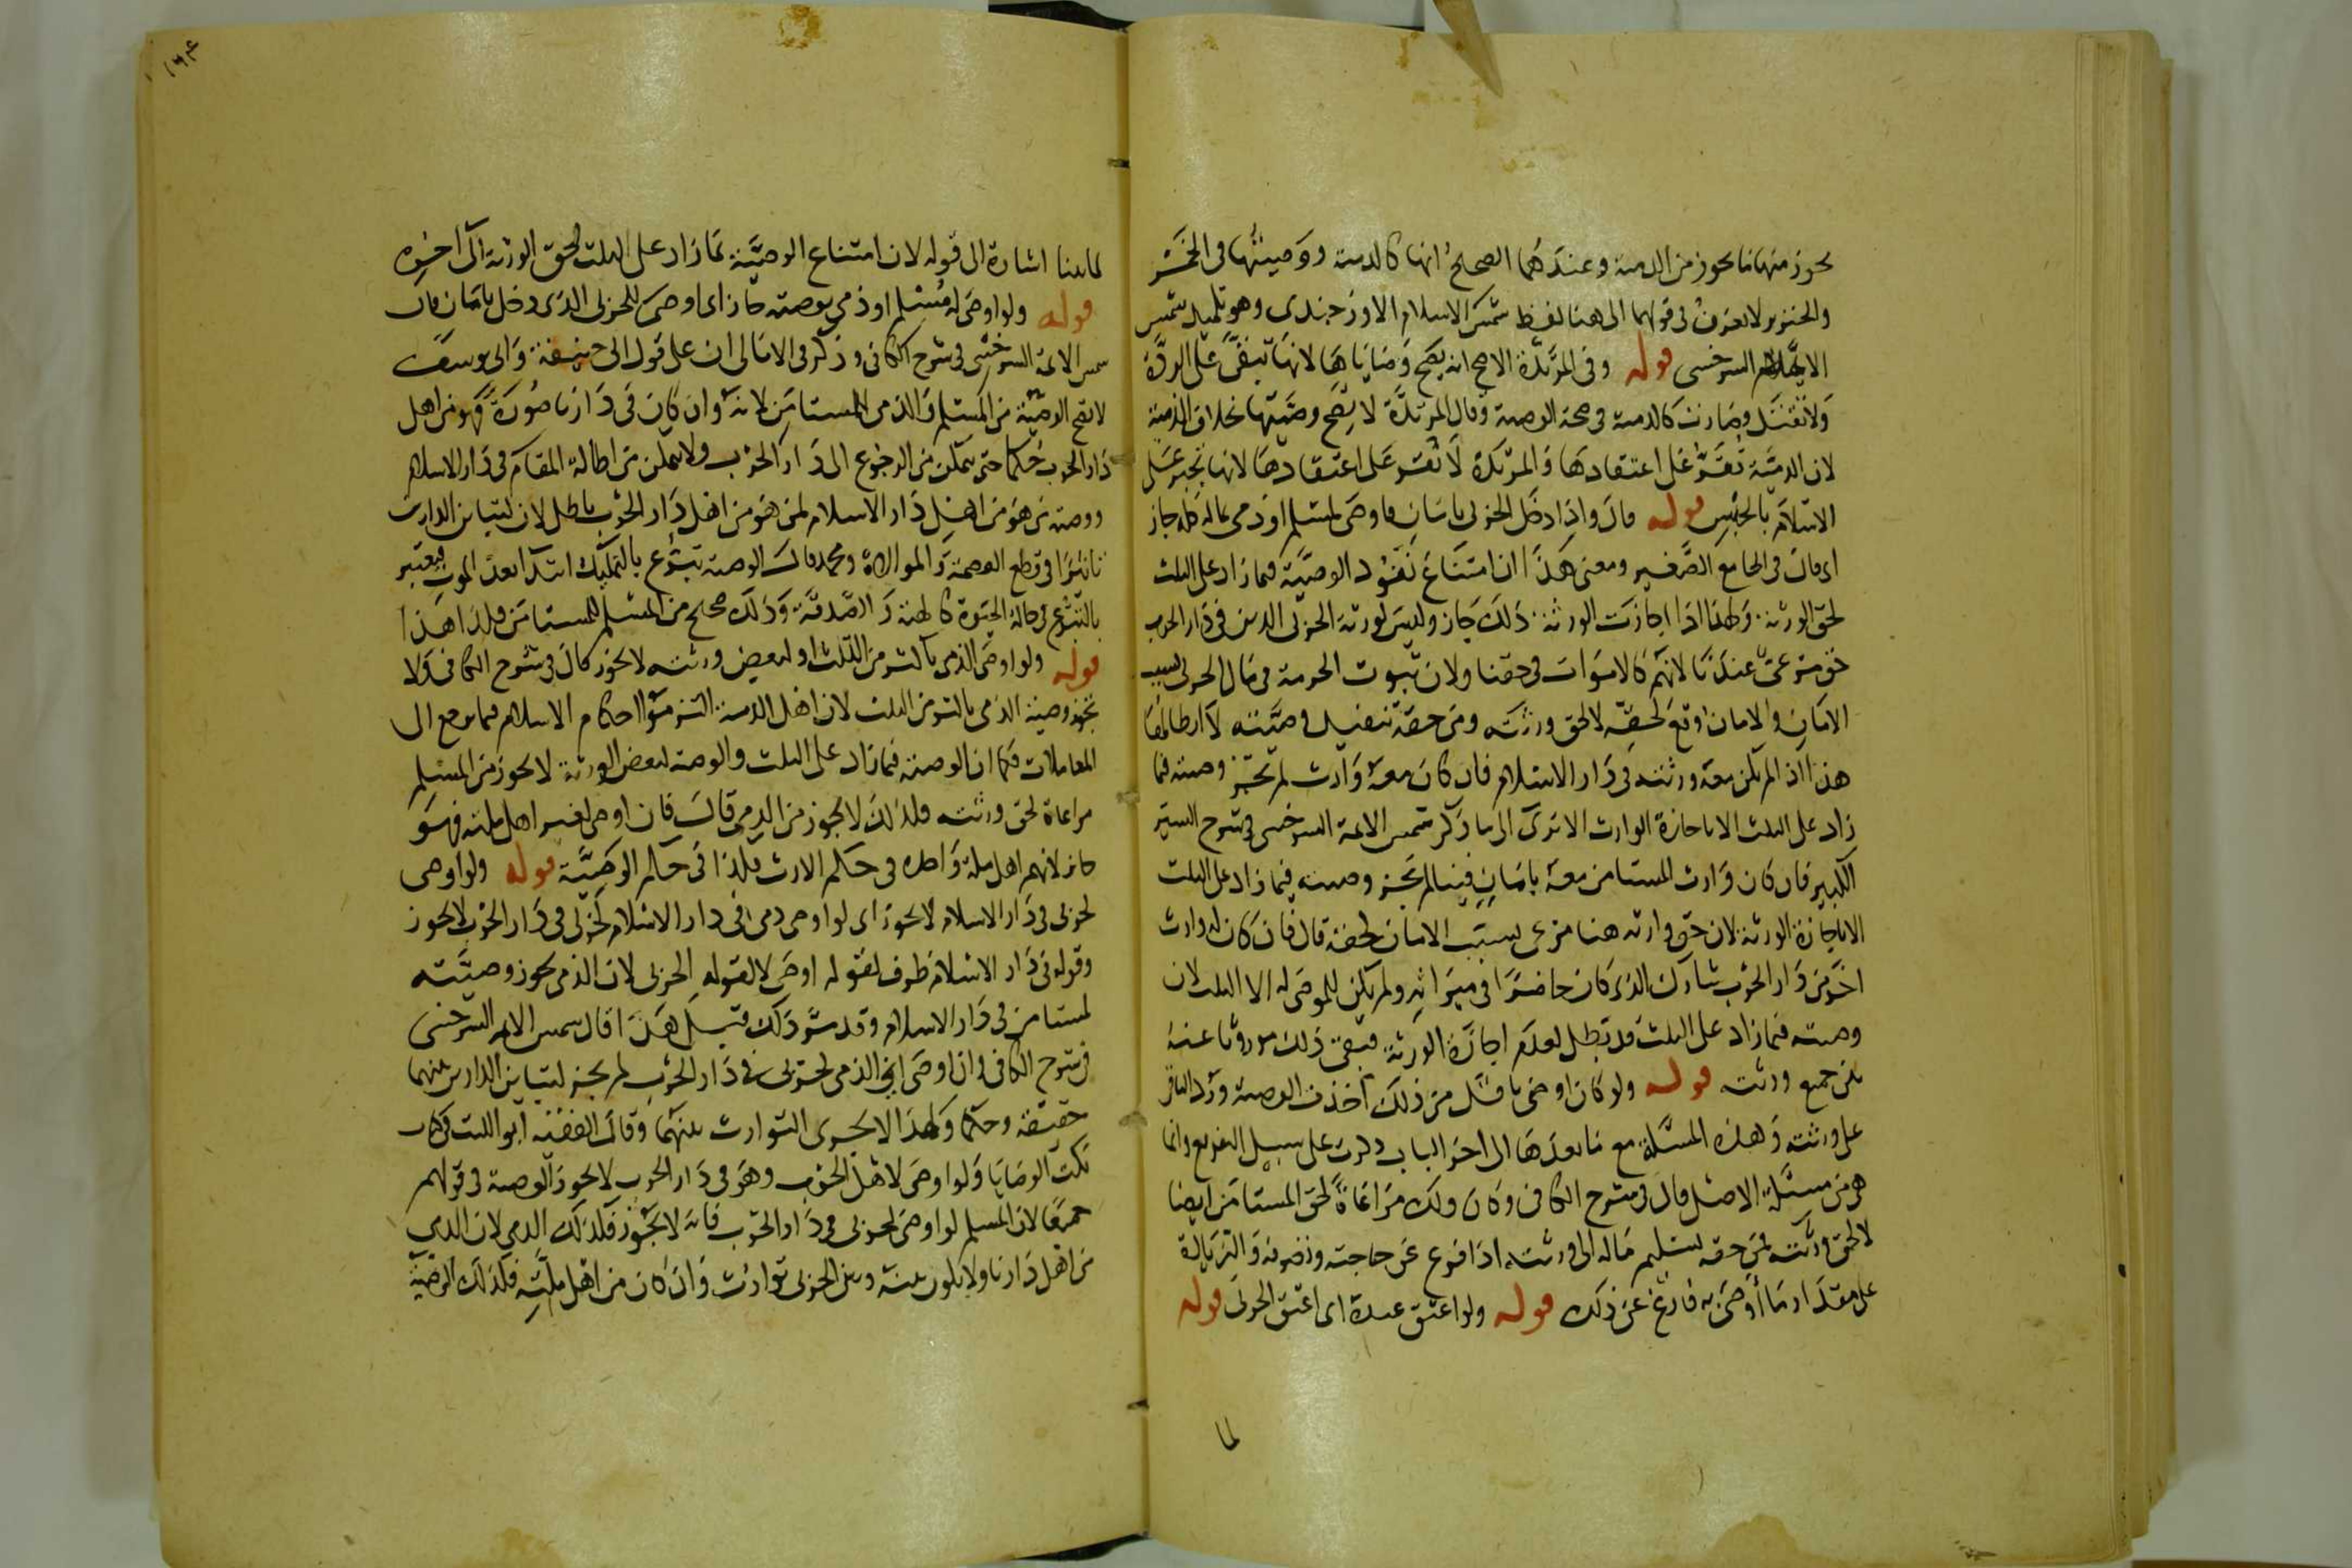 يجوز منها ما يجوز من الذمية وعندهما الصحيح انها كالذمية ووصيتها فى الخمر
والخنزير لا يعرف فى قولهما الى هنا لفظ شمس الاسلام الاوزجندى وهو تلميذ شمس
الائمة السرخسى قوله وفى المرتدة الاصح انه يصح وصاياها لانها تبقى على الردة
ولا تقتل وصارت كالذمية فى صحة الوصية وقال المرتدة لا يصح وصيتها بخلاف الذمية
لان الذمية تقر على اعتقادها والمرتدة لا تقر على اعتقادها لانها تجبر على
الاسلام بالحبس قوله قال واذا دخل الحربى بامان فاوصى لمسلم او ذمى بماله كله جاز
اى قال فى الجامع الصغير ومعنى هذا ان امتناع نفوذ الوصية فيما زاد على الثلث
لحق الورثة ولهذا اذا اجازت الورثة ذلك جاز وليس لورثة الحربى الذين فى دار الحرب
حق مرعى عندنا لانهم كالاموات فى حقنا ولان ثبوت الحرمة فى مال الحربى بسبب
الامان والامان وقع لحقه لا لحق ورثته ومن حقه تنفيذ وصيته لا ابطالها
هذا اذا لم يكن معه ورثته فى دار الاسلام فان كان معه وارث لم تجز وصيته فيما
زاد على الثلث الا باجازة الوارث الا ترى الى ما ذكر شمس الائمة السرخسى فى شرح السير
الكبير فان كان وارث المستامن معه بامان فينا لم يجز وصيته فيما زاد على الثلث
الا باجازة الورثة لان حق وارثه هنا مرعى بسبب الامان لحقه قال فان كان له وارث
اخر من دار الحرب شارك الذى كان حاضرا فى ميراثه ولم يكن للموصى له الا الثلث لان
وصيته فيما زاد على الثلث قد بطل لعدم اجازة الورثة فبقى ذلك موروثا عنه
بين جميع ورثته قوله ولو كان اوصى باقل من ذلك اخذت الوصية ورد الباقى
على ورثته وهذه المسئلة مع ما بعدها الى اخر الباب ذكرت على سبيل التفريع وانما
هى من مسئلة الاصل قال فى شرح الكافى وكان ذلك مراعاة لحق المستامن ايضا
لا لحق ورثته لمن حقه تسليم ماله الى ورثته اذا فرغ عن حاجته وتصرفه والزيادة
على مقدار ما اوصى به فارغ عن ذلك قوله ولو اعتق عبده اى اعتق الحربى قوله
لما
١٦٤
لما بينا اشارة الى قوله لان امتناع الوصية بما زاد على الثلث لحق الورثة الى اخره
قوله ولو اوصى له مسلم او ذمى بوصية جاز اى اوصى للحربى الذى دخل بامان قال
شمس الائمة السرخسى فى شرح الكافى وذكر فى الامالى ان على قول ابى حنيفة وابى يوسف
لا تصح الوصية من المسلم والذمى للمستامن لانه وان كان فى دارنا صورة فهو من اهل
دار الحرب حكما حتى يتمكن من الرجوع الى دار الحرب ولا يتمكن من اطالة المقام فى دار الاسلام
ووصية من هو من اهل دار الاسلام لمن هو من اهل دار الحرب باطل لان لتباين الدارين
تاثيرا فى قطع العصمة والموالاة ومحمد قال الوصية تبرع بالتمليك ابتداء بعد الموت فيعتبر
بالتبرع فى حالة الحيوة كالهبة والصدقة وذلك صحيح من المسلم للمستامن فلذا هذا
قوله ولو اوصى الذمى باكثر من الثلث او لبعض ورثته لا يجوز قال فى شرح الكافى ولا
تجوز وصية الذمى باكثر من الثلث لان اهل الذمة التزموا احكام الاسلام فيما يرجع الى
المعاملات فكما ان الوصية فيما زاد على الثلث والوصية لبعض الورثة لا يجوز من المسلم
مراعاة لحق ورثته فلذلك لا يجوز من الذمى قال فان اوصى لغير اهل ملته فهو
جائز لانهم اهل ملة واحدة فى حكم الارث فلهذا فى حكم الوصية قوله ولو اوصى
لحربى فى دار الاسلام لا يجوز اى لو اوصى ذمى فى دار الاسلام لحربى فى دار الحرب لا يجوز
وقوله فى دار الاسلام ظرف لقوله اوصى لا لقوله الحربى لان الذمى يجوز وصيته
لمستامن فى دار الاسلام وقد مر ذلك قبيل هذا قال شمس الائمة السرخسى
فى شرح الكافى وان اوصى الذمى لحربى فى دار الحرب لم يجز لتباين الدارين بينهما
حقيقة وحكما ولهذا لا يجرى التوارث بينهما وقال الفقيه ابو الليث فى كتاب
نكت الوصايا ولو اوصى لاهل الحرب وهو فى دار الحرب لا يجوز الوصية فى قولهم
جميعا لان المسلم لو اوصى لحربى فى دار الحرب فانه لا يجوز فكذلك الذمى لان الذمى
من اهل دارنا ولا يكون بينه وبين الحربى توارث وان كان من اهل ملته فكذلك الوصية